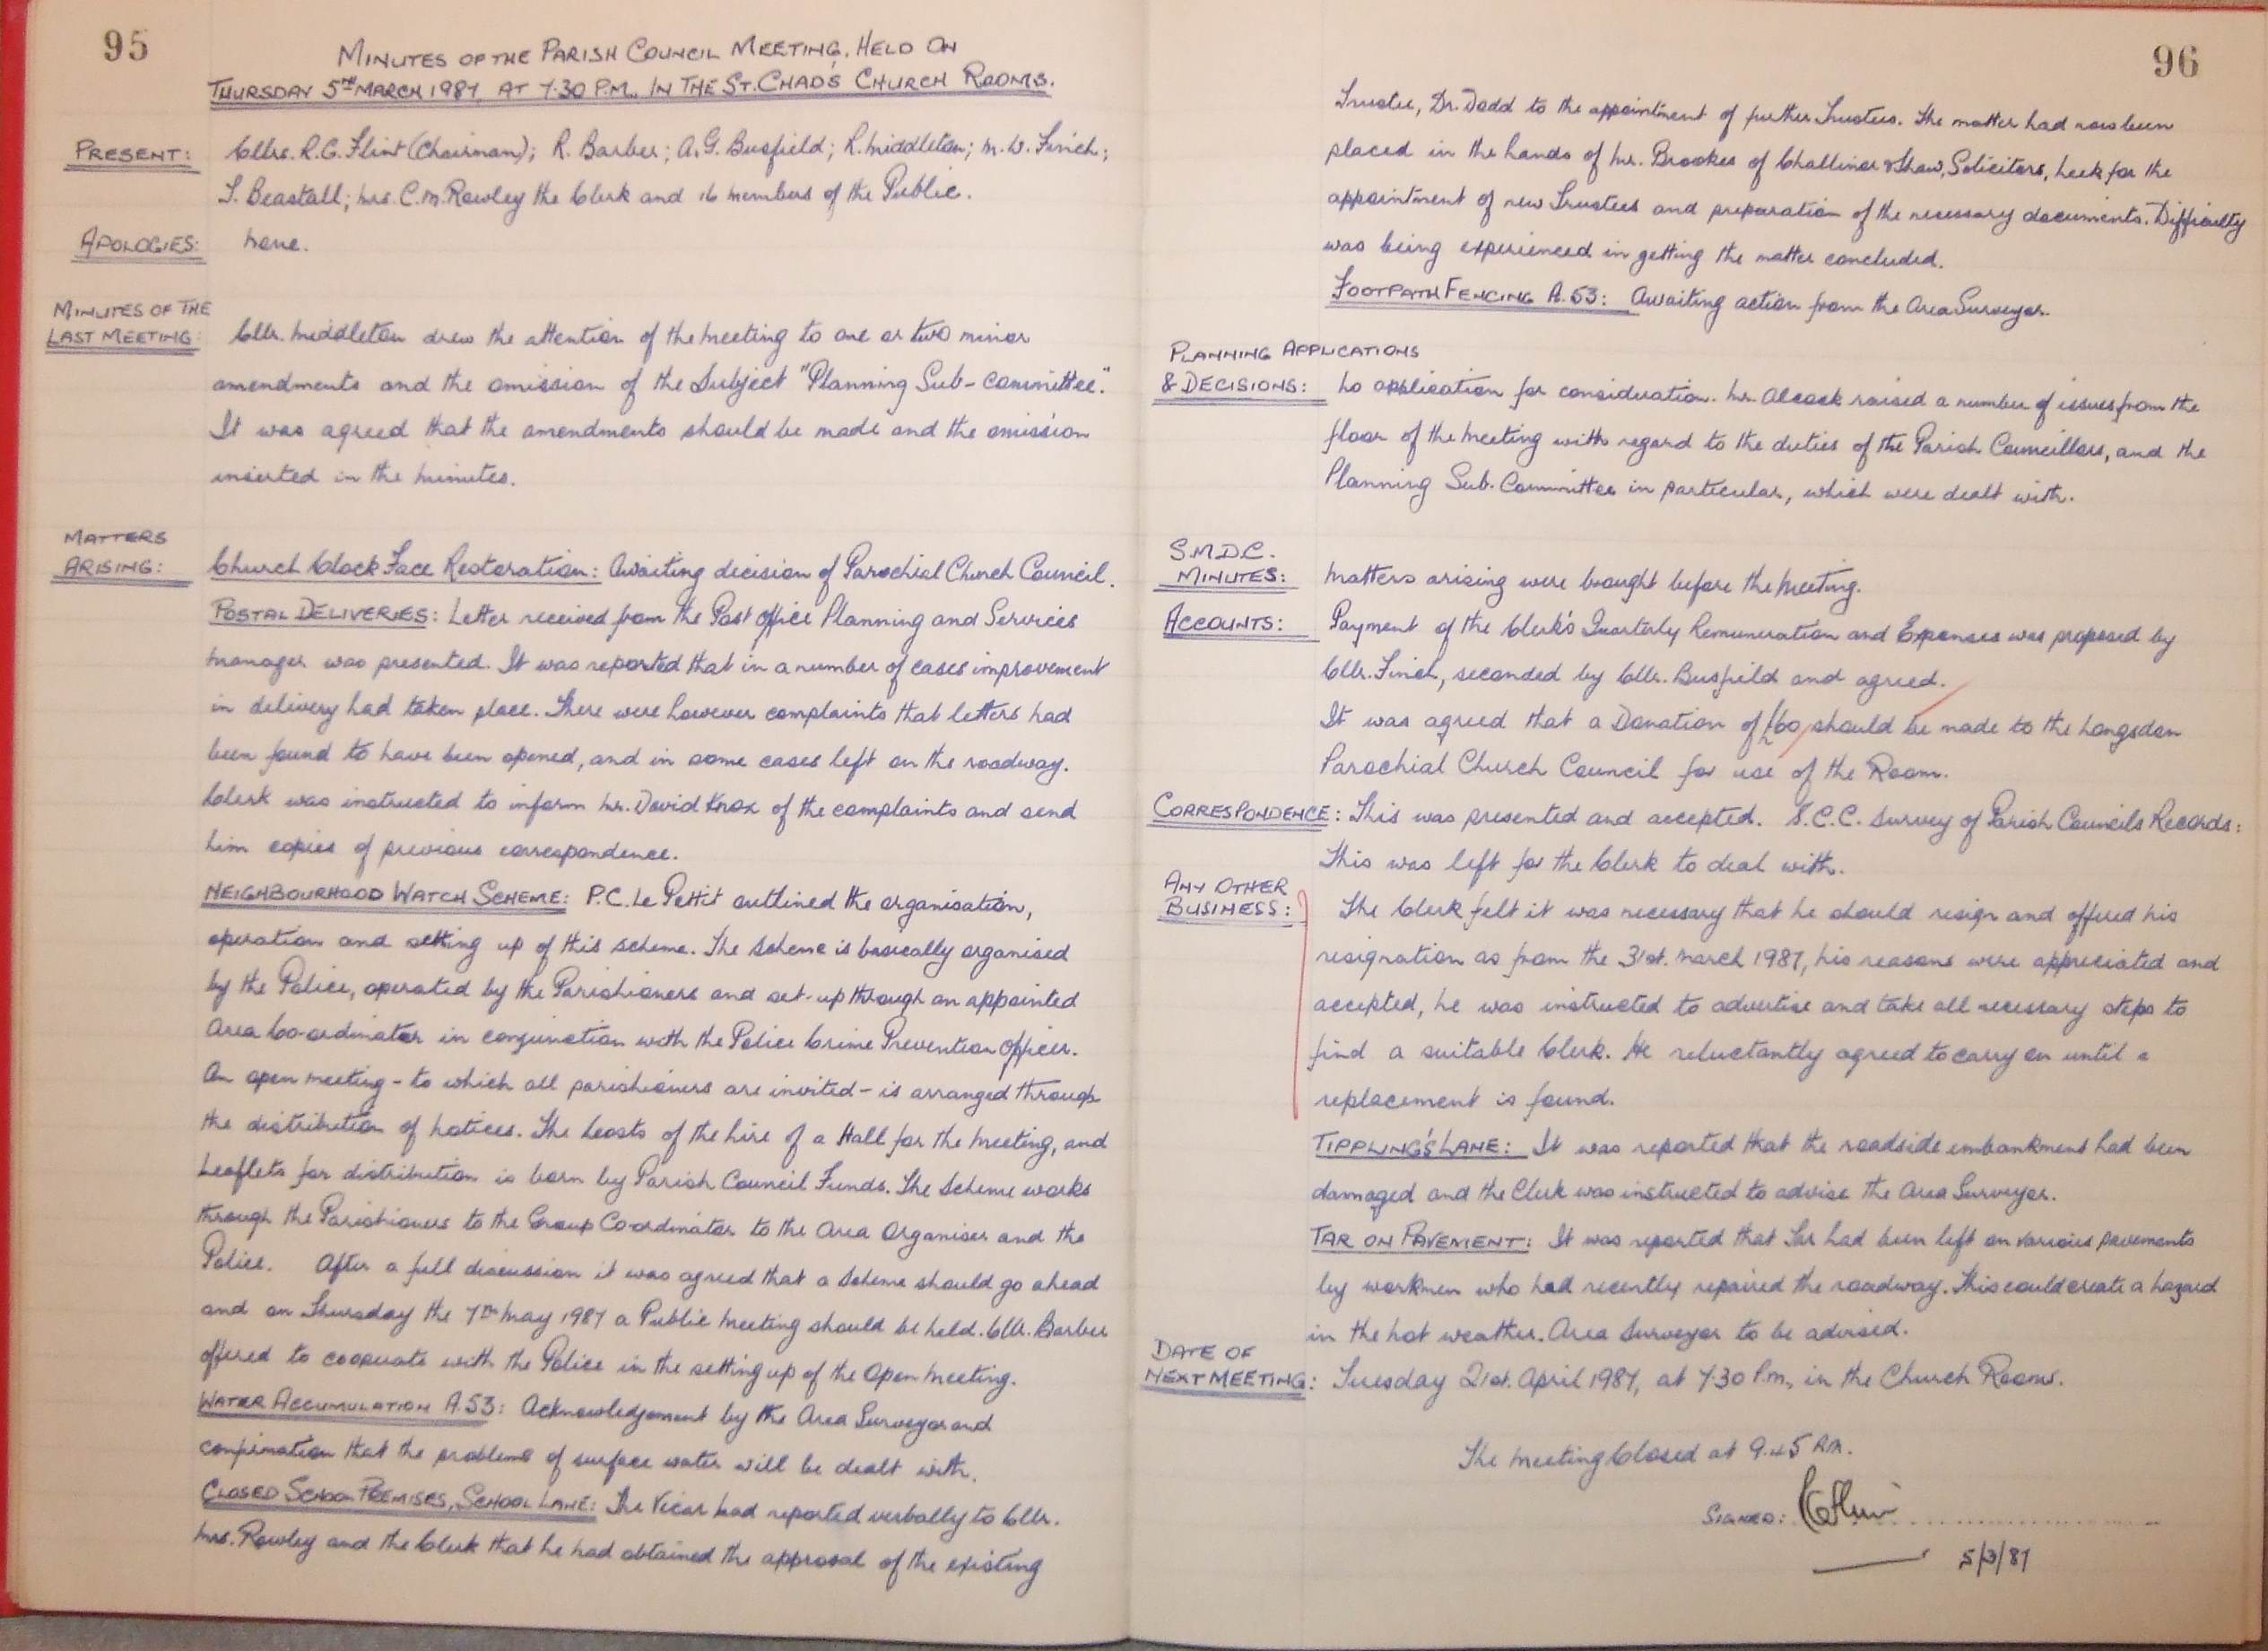 95
MINUTES OF THE PARISH COUNCIL MEETING, HELD ON
THURSDAY 5TH MARCH 1987, AT 7.30 P.M. IN THE ST. CHAD'S CHURCH ROOMS.
PRESENT: Cllrs. R.G. Flint (Chairman); R. Barber; A.G. Busfield; R. Middleton; M.W. Finch;
S. Beastall; Mrs. C.M. Rowley the Clerk and 16 members of the Public.
APOLOGIES: None.
MINUTES OF THE
LAST MEETING: Cllr. Middleton drew the attention of the Meeting to one or two minor
amendments and the omission of the Subject "Planning Sub-Committee."
It was agreed that the amendments should be made and the omission
inserted in the Minutes.
MATTERS
ARISING: Church Clock Face Restoration: Awaiting decision of Parochial Church Council.
POSTAL DELIVERIES: Letter received from the Post Office Planning and Services
Manager was presented. It was reported that in a number of cases improvement
in delivery had taken place. There were however complaints that letters had
been found to have been opened, and in some cases left on the roadway.
Clerk was instructed to inform Mr. David Knox of the complaints and send
him copies of previous correspondence.
NEIGHBOURHOOD WATCH SCHEME: P.C. Le Pettit outlined the organisation,
operation and setting up of this scheme. The scheme is basically organised
by the Police, operated by the Parishioners and set-up through an appointed
Area Co-ordinator in conjunction with the Police Crime Prevention Officer.
An open meeting - to which all parishioners are invited - is arranged through
the distribution of Notices. The Costs of the hire of a Hall for the Meeting, and
Leaflets for distribution is born by Parish Council Funds. The Scheme works
through the Parishioners to the Group Co-ordinator to the Area Organiser and the
Police. After a full discussion it was agreed that a Scheme should go ahead
and on Thursday the 7th May 1987 a Public Meeting should be held. Cllr. Barber
offered to cooperate with the Police in the setting up of the Open Meeting.
WATER ACCUMULATION A.53: Acknowledgement by the Area Surveyor and
confirmation that the problems of surface water will be dealt with.
CLOSED SCHOOL PREMISES, SCHOOL LANE: The Vicar had reported verbally to Cllr.
Mrs. Rowley and the Clerk that he had obtained the approval of the existing
96
Trustee, Dr. Dodd to the appointment of further Trustees. The matter had now been
placed in the hands of Mr. Brookes of Challinor & Shaw, Solicitors, Leek for the
appointment of new Trustees and preparation of the necessary documents. Difficulty
was being experienced in getting the matter concluded.
FOOTPATH FENCING A.53: Awaiting action from the Area Surveyor.
PLANNING APPLICATIONS
& DECISIONS: No application for consideration. Mr. Alcock raised a number of issues from the
floor of the Meeting with regard to the duties of the Parish Councillors, and the
Planning Sub. Committee in particular, which were dealt with.
S.M.D.C.
MINUTES: Matters arising were brought before the Meeting.
ACCOUNTS: Payment of the Clerk's Quarterly Remuneration and Expenses was proposed by
Cllr. Finch, seconded by Cllr. Busfield and agreed.
It was agreed that a Donation of £60 should be made to the Longsdon
Parochial Church Council for use of the Room.
CORRESPONDENCE: This was presented and accepted. S.C.C. Survey of Parish Councils Records:
This was left for the Clerk to deal with.
ANY OTHER
BUSINESS: The Clerk felt it was necessary that he should resign and offered his
resignation as from the 31st. March 1987, his reasons were appreciated and
accepted, he was instructed to advertise and take all necessary steps to
find a suitable Clerk. He reluctantly agreed to carry on until a
replacement is found.
TIPPLING'S LANE: It was reported that the roadside embankment had been
damaged and the Clerk was instructed to advise the Area Surveyor.
TAR ON PAVEMENT: It was reported that Tar had been left on various pavements
by workmen who had recently repaired the roadway. This could create a hazard
in the hot weather. Area Surveyor to be advised.
DATE OF
NEXT MEETING: Tuesday 21st. April 1987, at 7.30 P.m, in the Church Rooms.
The Meeting Closed at 9.45 P.M.
SIGNED:
5/3/87